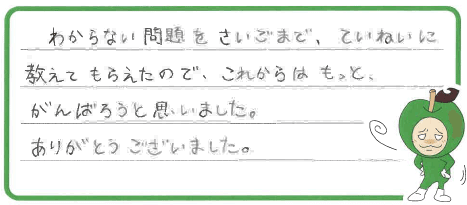 わからない問題をさいごまで、ていねいに
教えてもらえたので、これからはもっと、
がんばろうと思いました。
ありがとうございました。